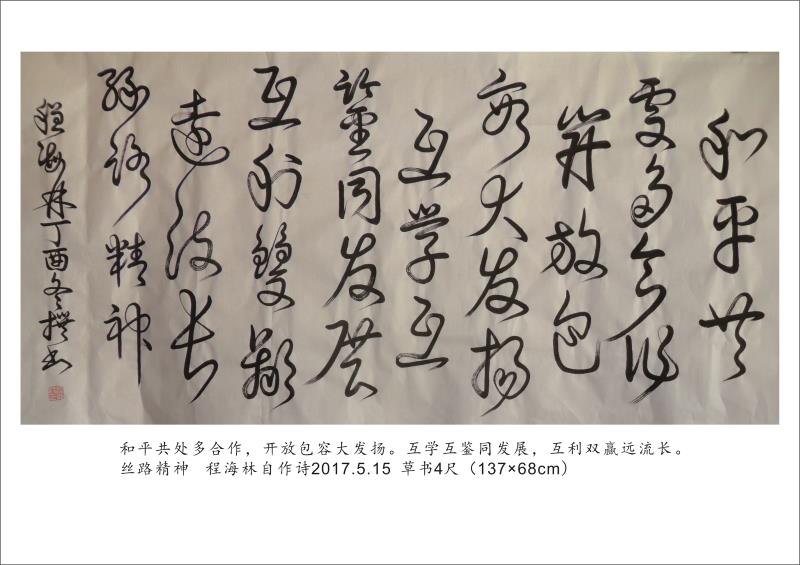 和平共
處多合作
开放包
容大发扬
互学互
鉴同发展
互利雙赢
遠流长
絲路精神
程海林丁酉冬撰书
和平共处多合作，开放包容大发扬。互学互鉴同发展，互利双赢远流长。
丝路精神 程海林自作诗2017.5.15 草书4尺（137×68cm）